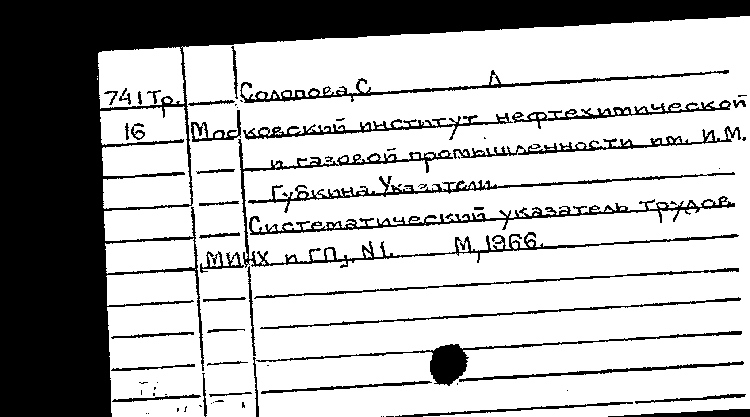 741 Тр. Солопова, С Л
16 Московский институт нефтехимической
и газовой промышленности им. И.М.
Губкина. Указатели.
Систематический указатель трудов
МИНХ и ГП, N1. М, 1966.